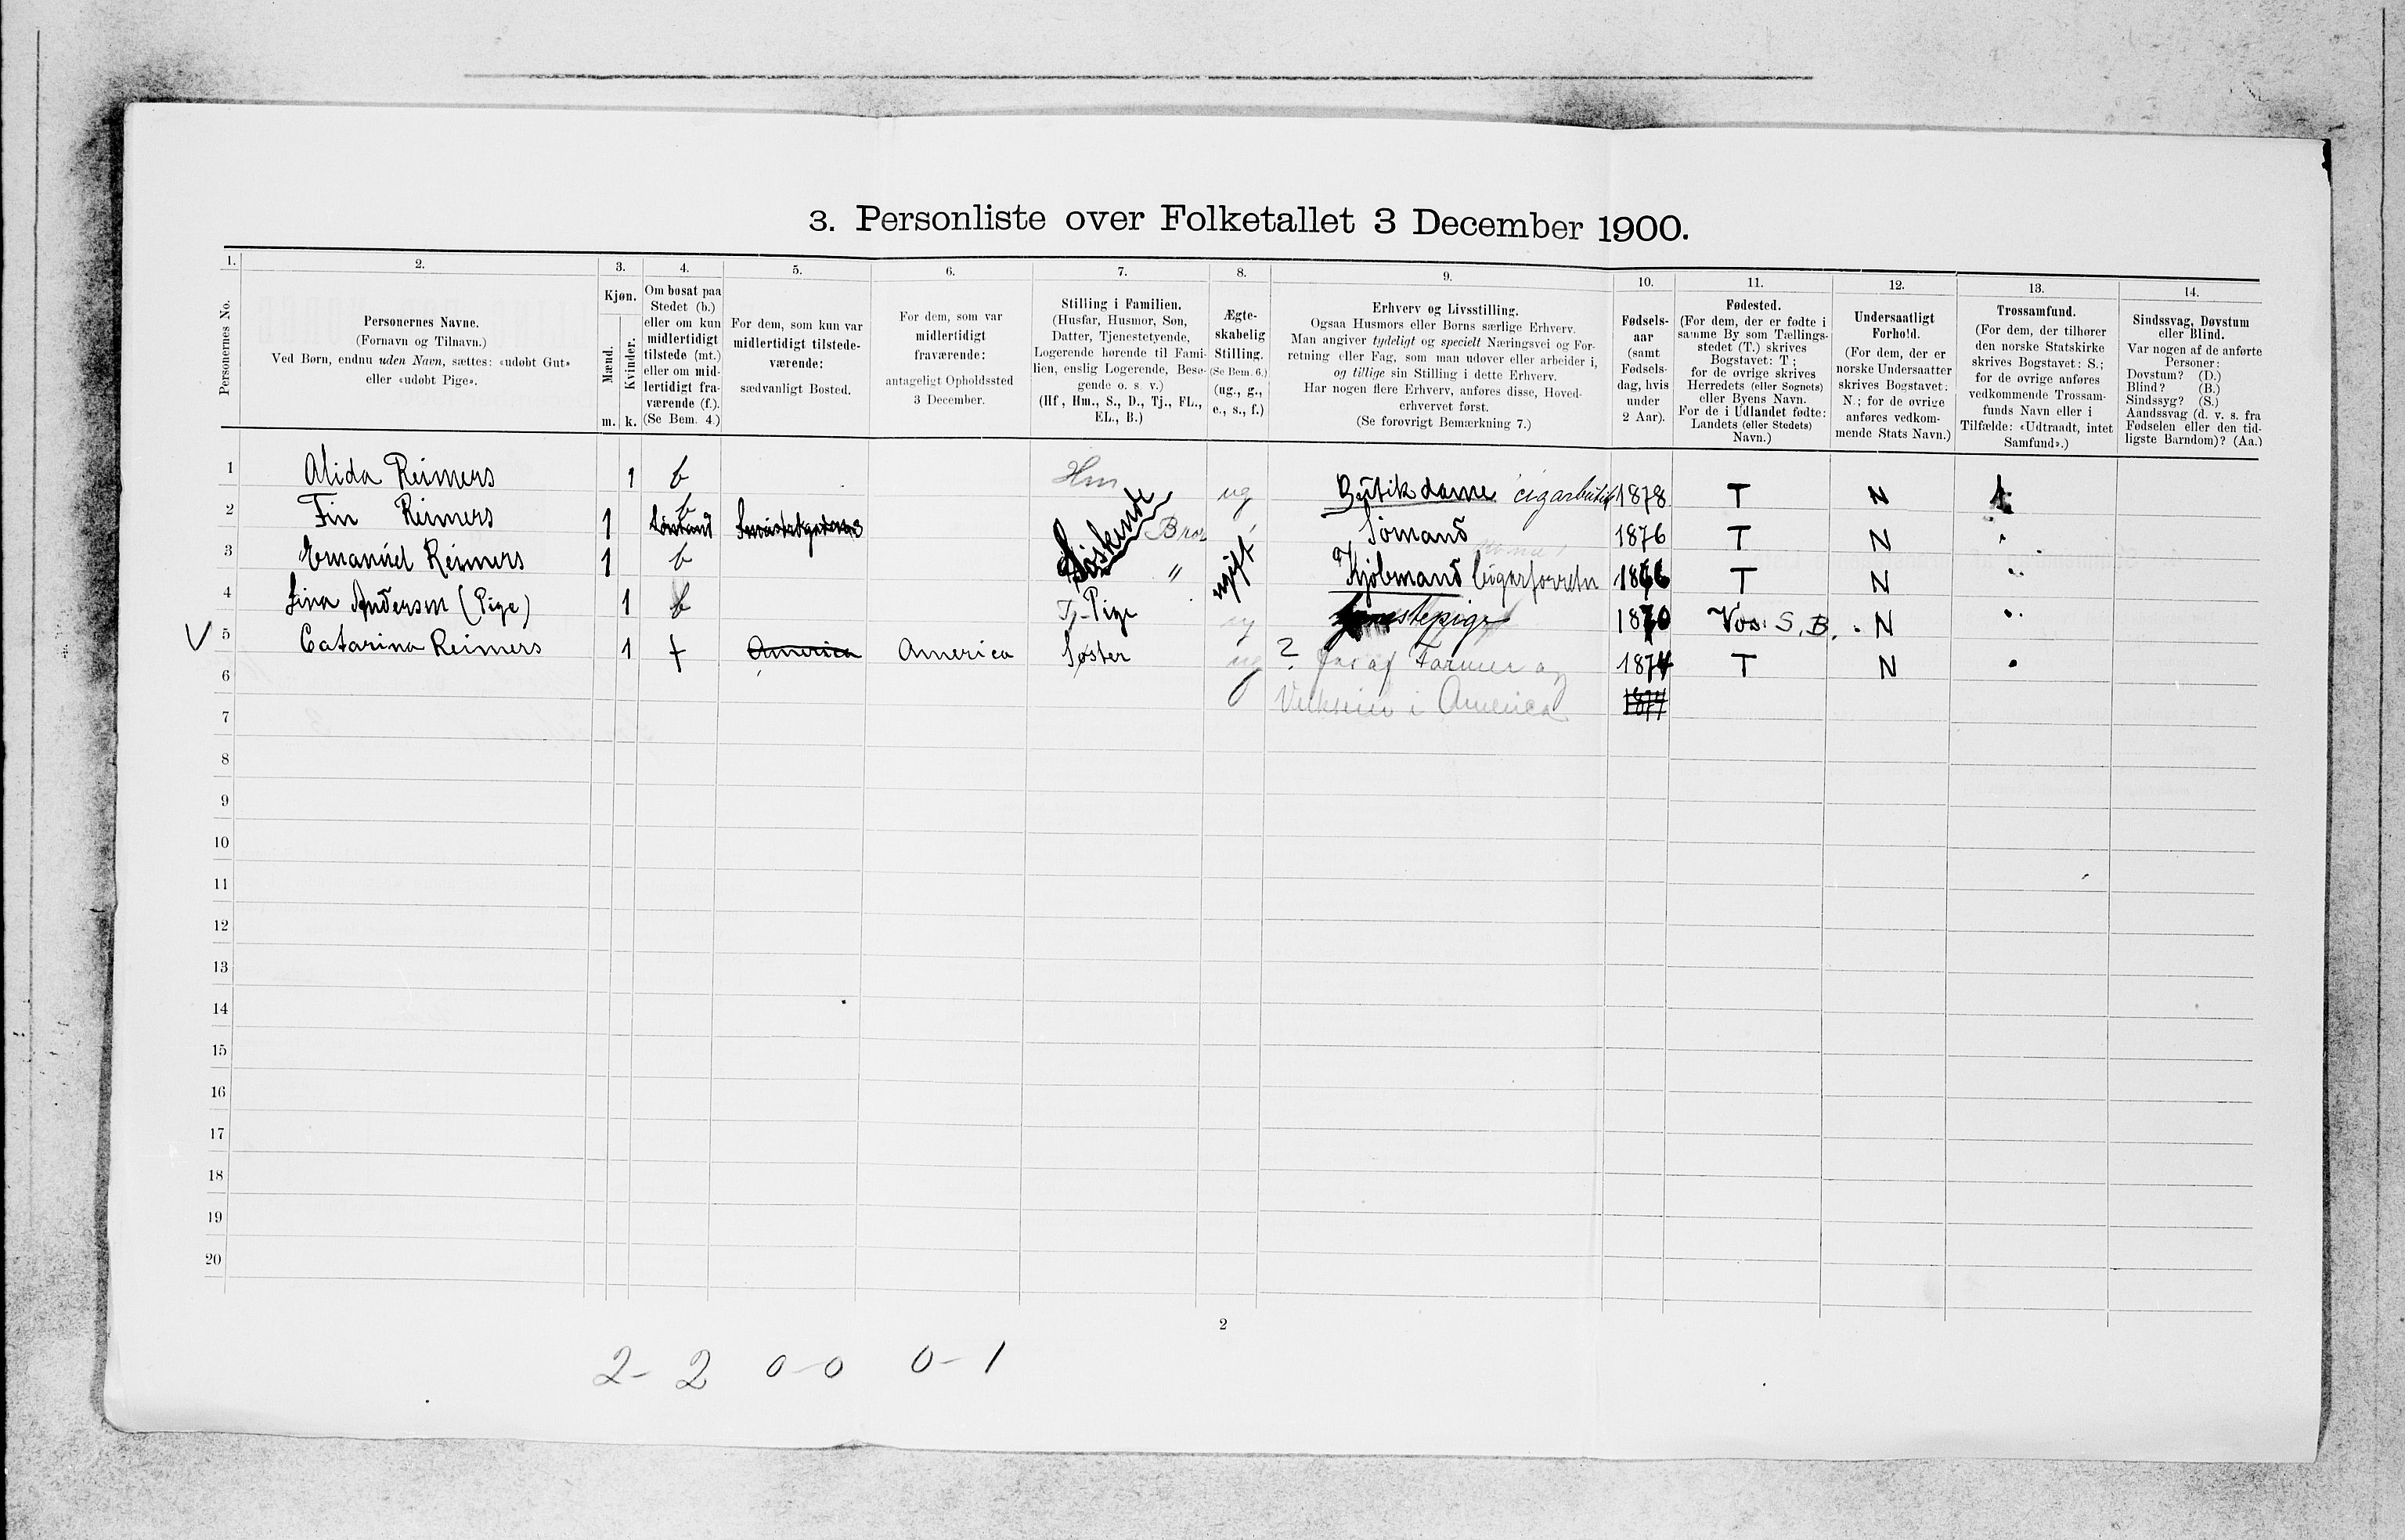 3. Personliste over Folketallet 3 December 1900.
1. 2. 3. 4. 5. 6. 7. 8. 9. 10. 11. 12. 13. 14.
Personernes No.
Personernes Navne.
(Fornavn og Tilnavn.)
Ved Børn, endnu uden Navn, sættes: «udøbt Gut»
eller «udøbt Pige».
Kjøn.
Mænd.
Kvinder.
m. k.
Om bosat paa
Stedet (b.)
eller om kun
midlertidigt
tilstede (mt.)
eller om mid-
lertidigt fra-
værende (f.).
(Se Bem. 4.)
For dem, som kun var
midlertidigt tilstede-
værende:
sædvanligt Bosted.
For dem, som var
midlertidigt
fraværende:
antageligt Opholdssted
3 December.
Stilling i Familien.
(Husfar, Husmor, Søn,
Datter, Tjenestetyende,
Logerende hørende til Fami-
lien, enslig Logerende, Besø-
gende o. s. v.)
(Hf., Hm., S., D., Tj., FL.,
EL., B.)
Ægte-
skabelig
Stilling.
(Se Bem. 6.)
(ug., g.,
e., s., f.)
Erhverv og Livsstilling.
Ogsaa Husmors eller Børns særlige Erhverv.
Man angiver tydeligt og specielt Næringsvei og For-
retning eller Fag, som man udøver eller arbeider i,
og tillige sin Stilling i dette Erhverv.
Har nogen flere Erhverv, anføres disse, Hoved-
erhvervet først.
(Se forøvrigt Bemærkning 7.)
Fødsels-
aar
(samt
Fødsels-
dag, hvis
under
2 Aar).
Fødested.
(For dem, der er fødte i
samme By som Tællings-
stedet (T.) skrives
Bogstavet: T;
for de øvrige skrives
Herredets (eller Sognets)
eller Byens Navn.
For de i Udlandet fødte:
Landets (eller Stedets)
Navn.)
Undersaatligt
Forhold.
(For dem, der er
norske Undersaatter
skrives Bogstavet:
N.; for de øvrige
anføres vedkom-
mende Stats Navn.)
Trossamfund.
(For dem, der tilhører
den norske Statskirke
skrives Bogstavet: S.;
for de øvrige anføres
vedkommende Trossam-
funds Navn eller i
Tilfælde: «Udtraadt, intet
Samfund».)
Sindssvag, Døvstum
eller Blind.
Var nogen af de anførte
Personer:
Døvstum? (D.)
Blind? (B.)
Sindssyg? (S.)
Aandssvag (d. v. s. fra
Fødselen eller den tid-
ligste Barndom)? (Aa.)
1 Alida Reimers 1 b Hm ug Butikdame cigarbutik 1878 T N
2 Fin Reimers 1 b Søskende Bror Sømand 1876 T N
3 Emanuel Reimers 1 b " ugift Kjøbmand Cigarforretn 1866 T N
4 Lina Andersen (Pige) 1 b Tj-Pige ug 1870 Vos: S. B. N
V 5 Catarina Reimers 1 f America America Søster ug ? af Farmer og 1874 T N
6 i America 1877
7
8
9
10
11
12
13
14
15
16
17
18
19
20
2
2- 2 0-0 0-1